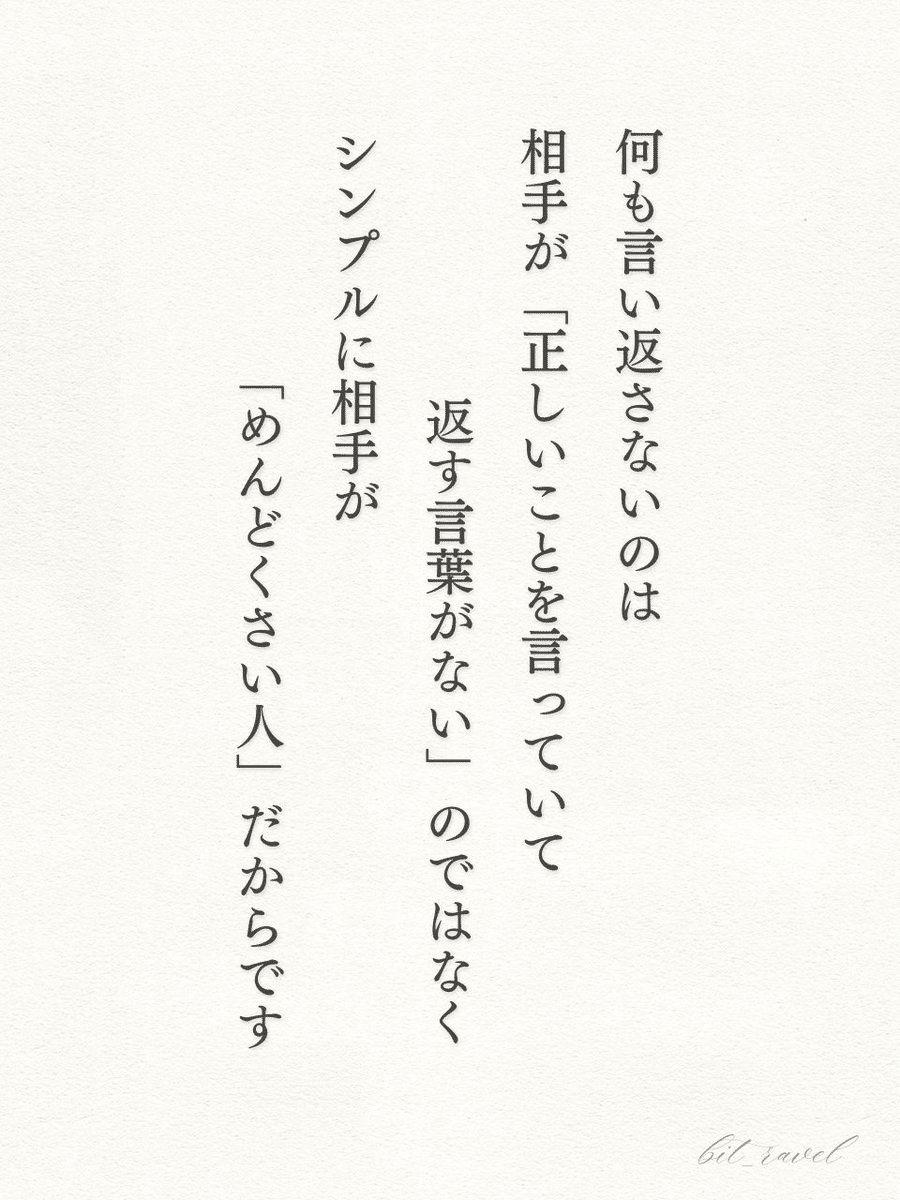 何も言い返さないのは
相手が「正しいことを言っていて
返す言葉がない」のではなく
シンプルに相手が
「めんどくさい人」だからです
bit_ravel